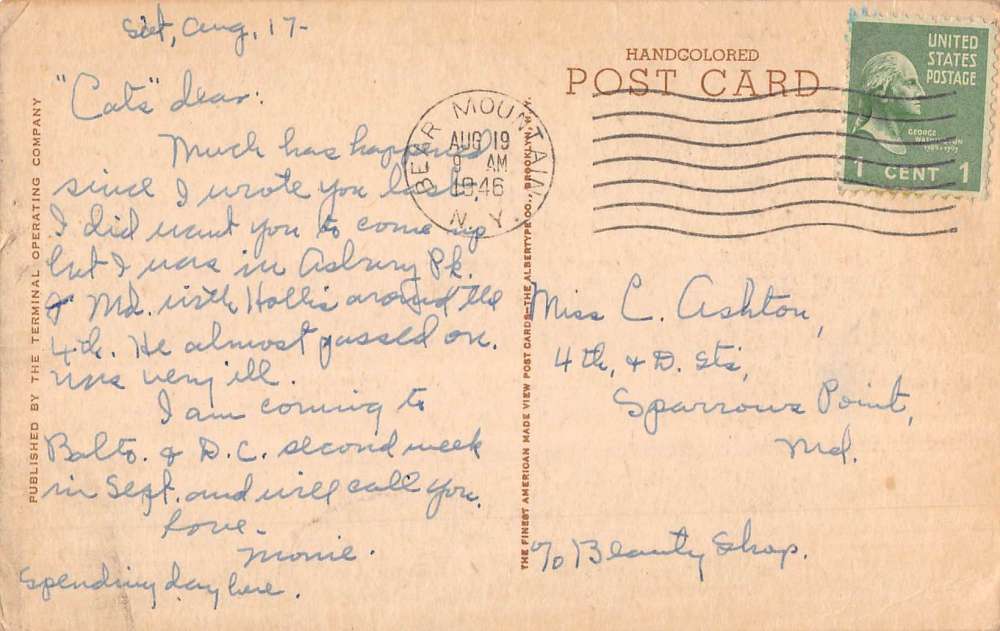 Sat, Aug, 17-
"Cats" dear:
Much has happened
since I wrote you last.
I did want you to come up
but I was in Asbury Pk.
& Md. with Hollis around the
4th. He almost passed on.
Was very ill.
I am coming to
Balto. & D.C. second week
in Sept. and will call you.
Love-
Monie.
Spending day here.
PUBLISHED BY THE TERMINAL OPERATING COMPANY
BEAR MOUNTAIN
AUG 19
9 AM
1946
N.Y.
THE FINEST AMERICAN MADE VIEW POST CARDS—THE ALBERTYPE CO., BROOKLYN, N.Y.
HANDCOLORED
POST CARD
UNITED
STATES
POSTAGE
GEORGE
WASHINGTON
1 CENT 1
Miss C. Ashton,
4th, & D. Sts,
Sparrows Point,
Md.
c/o Beauty Shop.